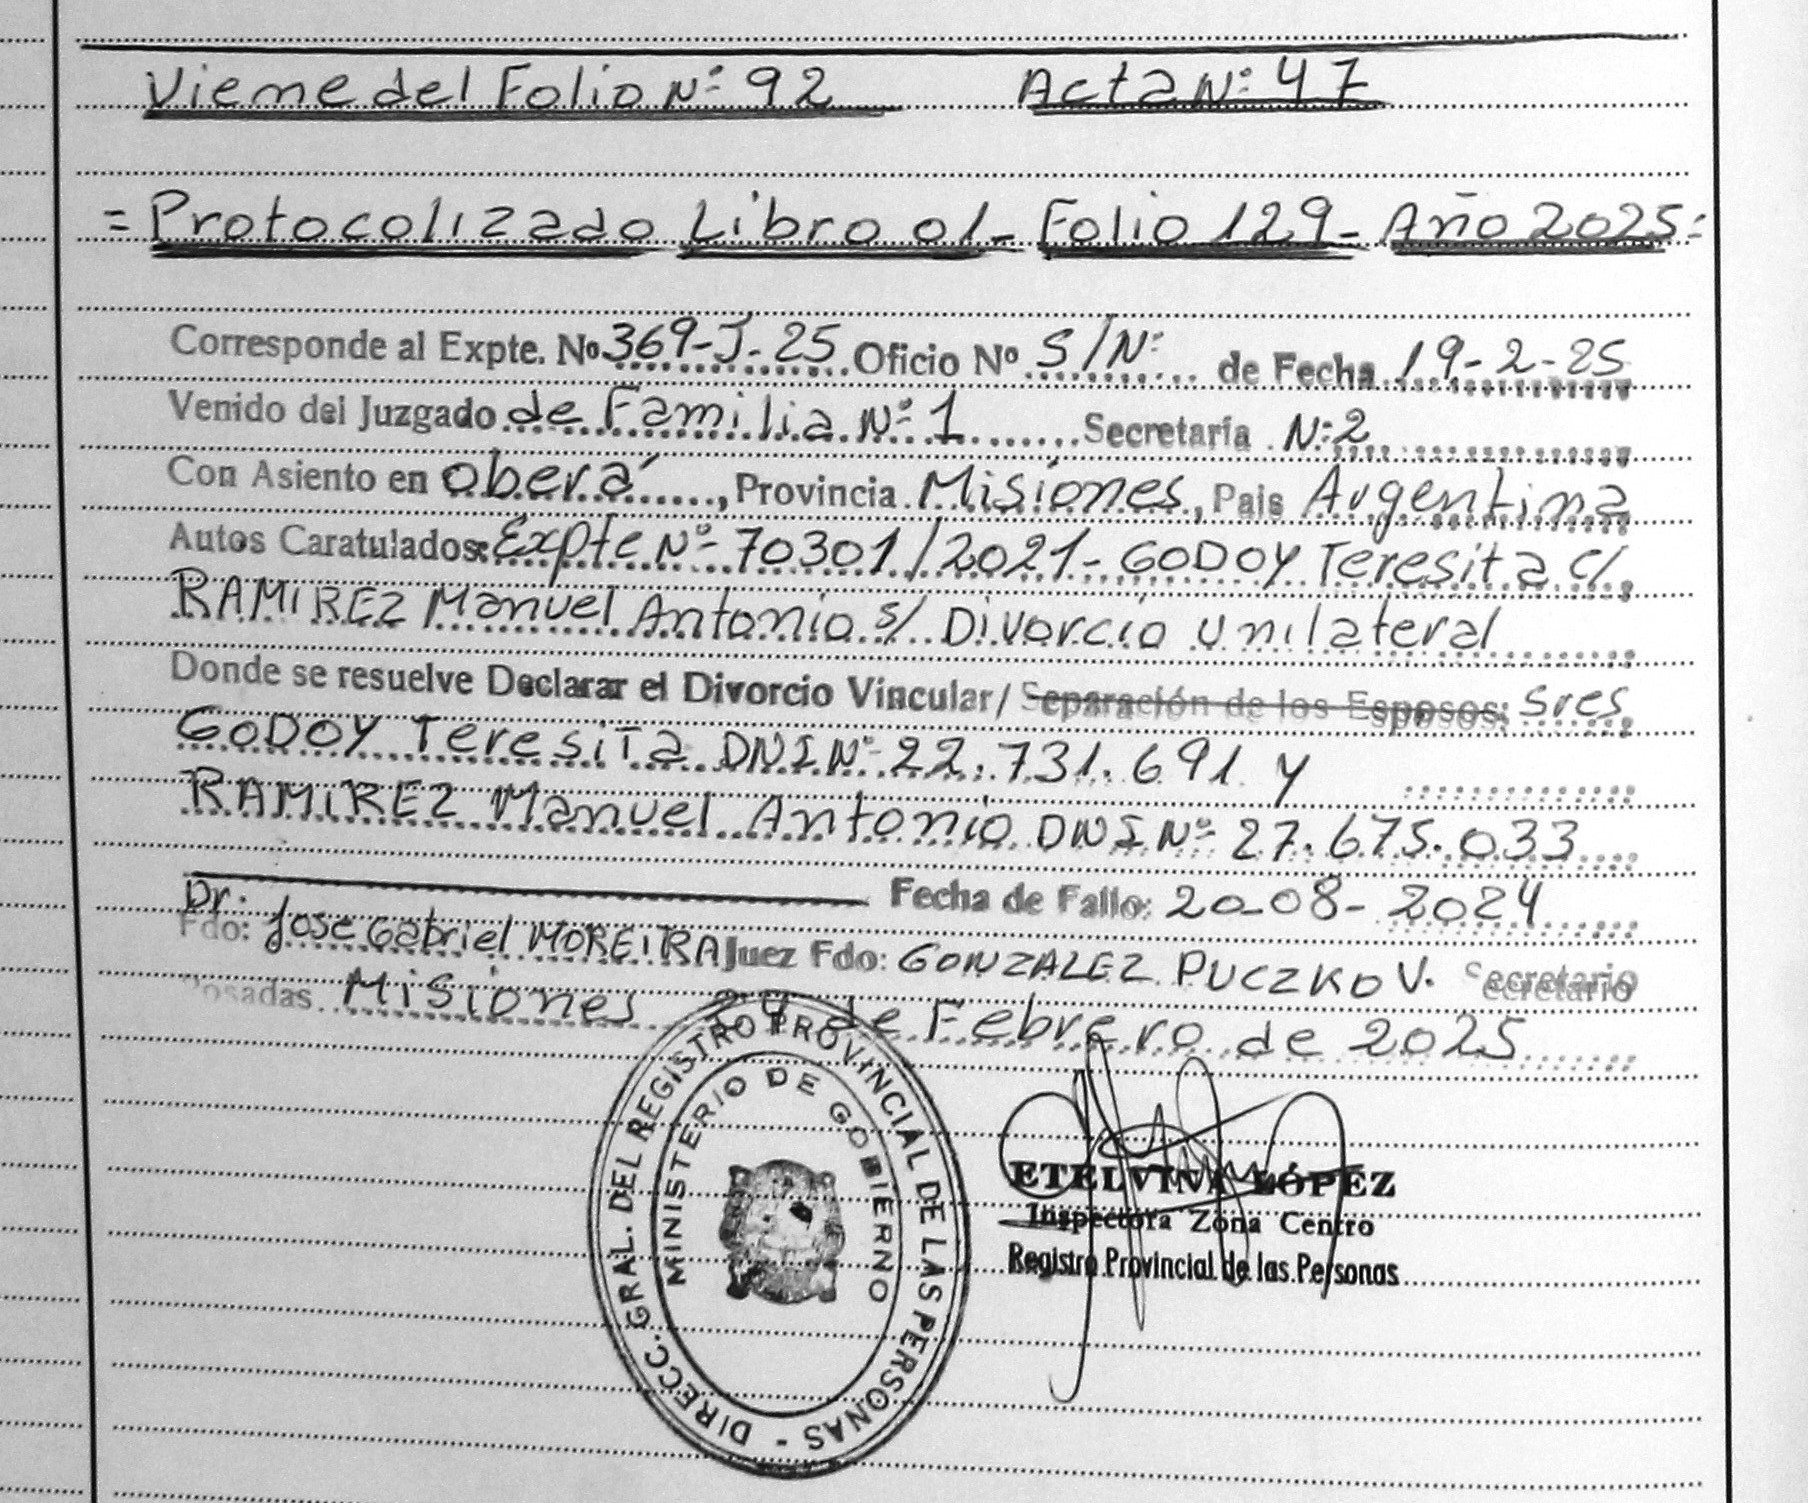 Viene del Folio Nº 92 Acta Nº 47
= Protocolizado Libro 01- Folio 129- Año 2025=
Corresponde al Expte. Nº 369-J-25 Oficio Nº S/Nº de Fecha 19-2-25
Venido del Juzgado de Familia Nº 1 Secretaría Nº 2
Con Asiento en oberá, Provincia Misiones, País Argentina
Autos Caratulados: Expte Nº 70301/2021- GODOY Teresita c/
RAMIREZ Manuel Antonio s/ Divorcio Unilateral
Donde se resuelve Declarar el Divorcio Vincular/ Separación de los Esposos: Sres
GODOY Teresita DNI Nº 22.731.691 y
RAMIREZ Manuel Antonio DNI Nº 27.675.033
Fecha de Fallo: 20-08-2024
Fdo: Dr. Jose Gabriel MOREIRA Juez Fdo: GONZALEZ PUCZKO V. Secretario
Posadas Misiones 24 de Febrero de 2025
DIRECC. GRAL. DEL REGISTRO PROVINCIAL DE LAS PERSONAS -
MINISTERIO DE GOBIERNO
ETELVINA LÓPEZ
Inspectora Zona Centro
Registro Provincial de las Personas